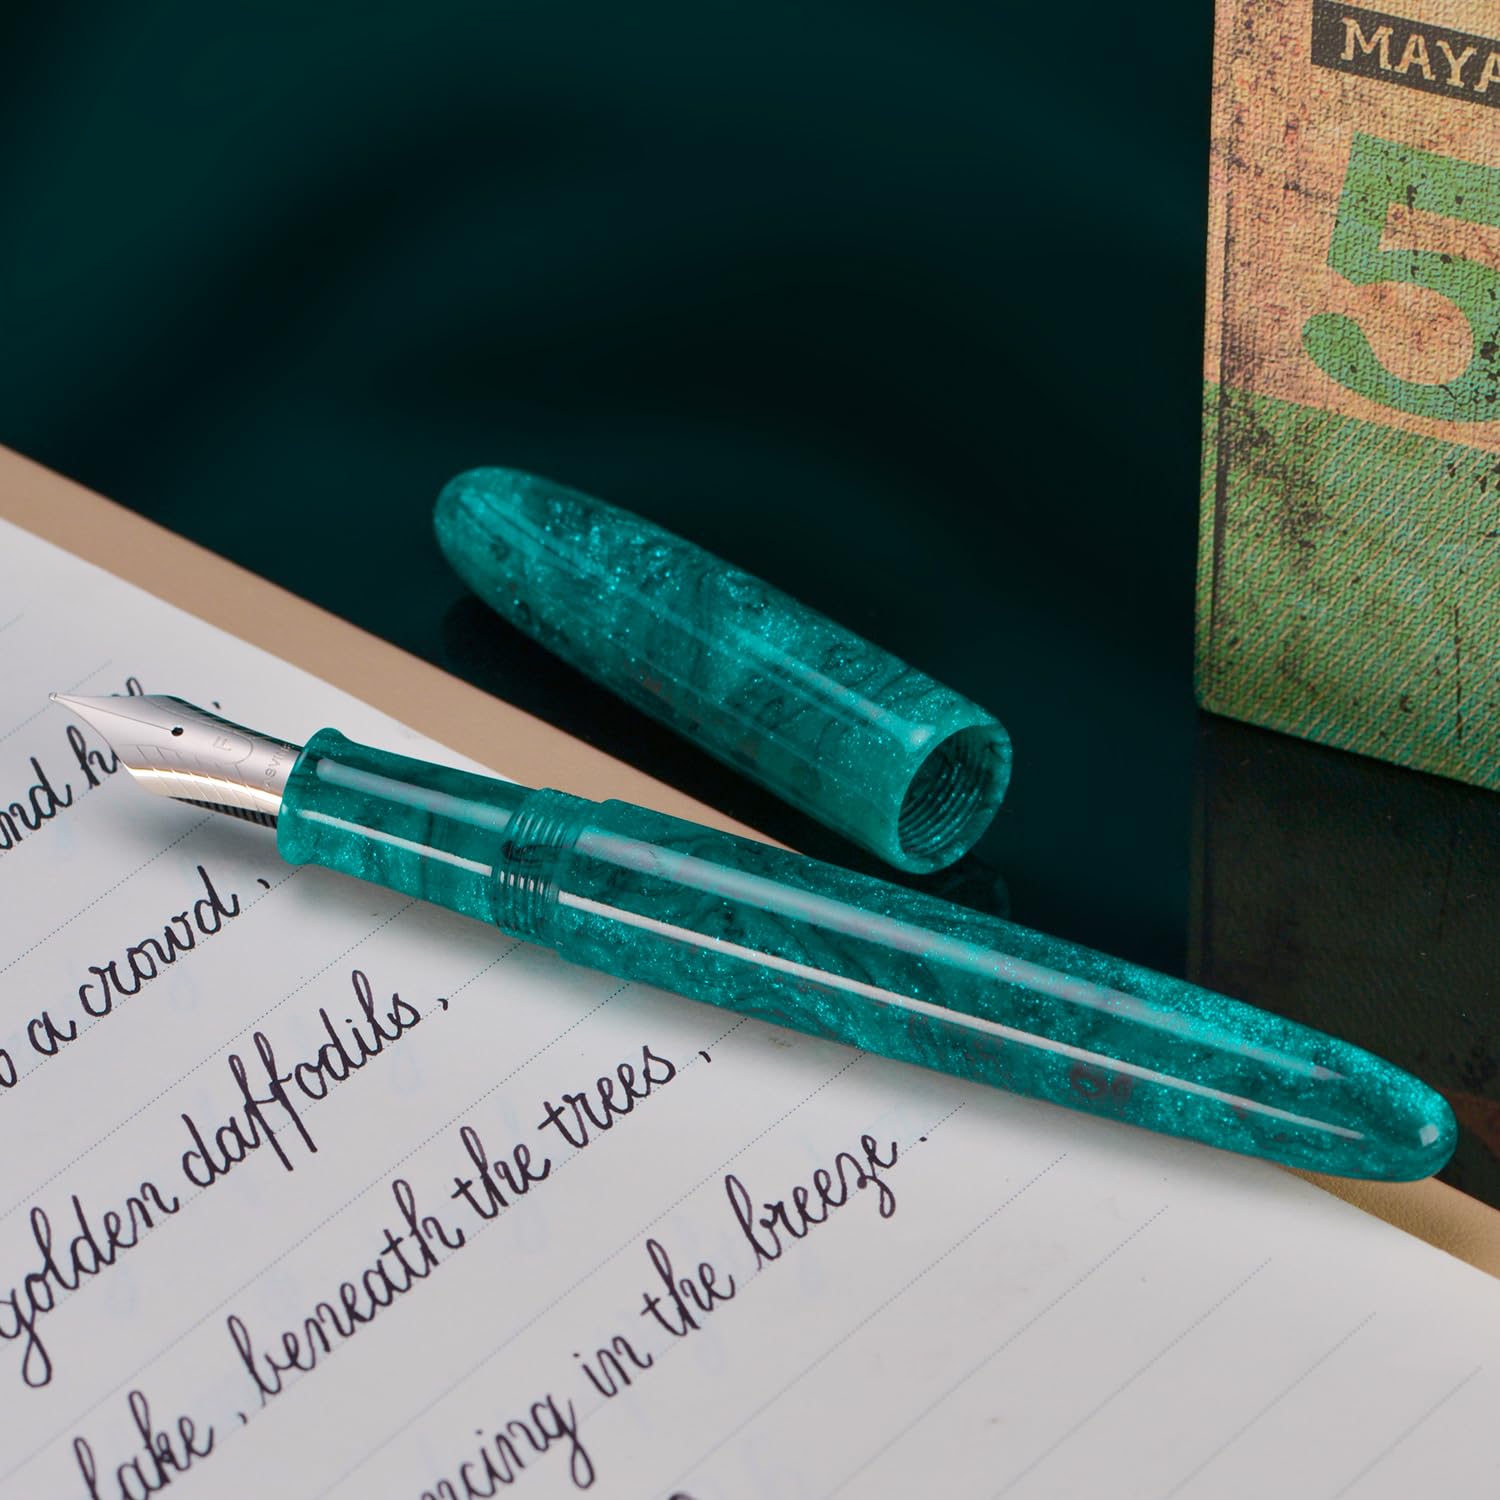 MAYA
5
F
ASVINE
a crowd,
golden daffodils,
lake, beneath the trees,
ncing in the breeze.